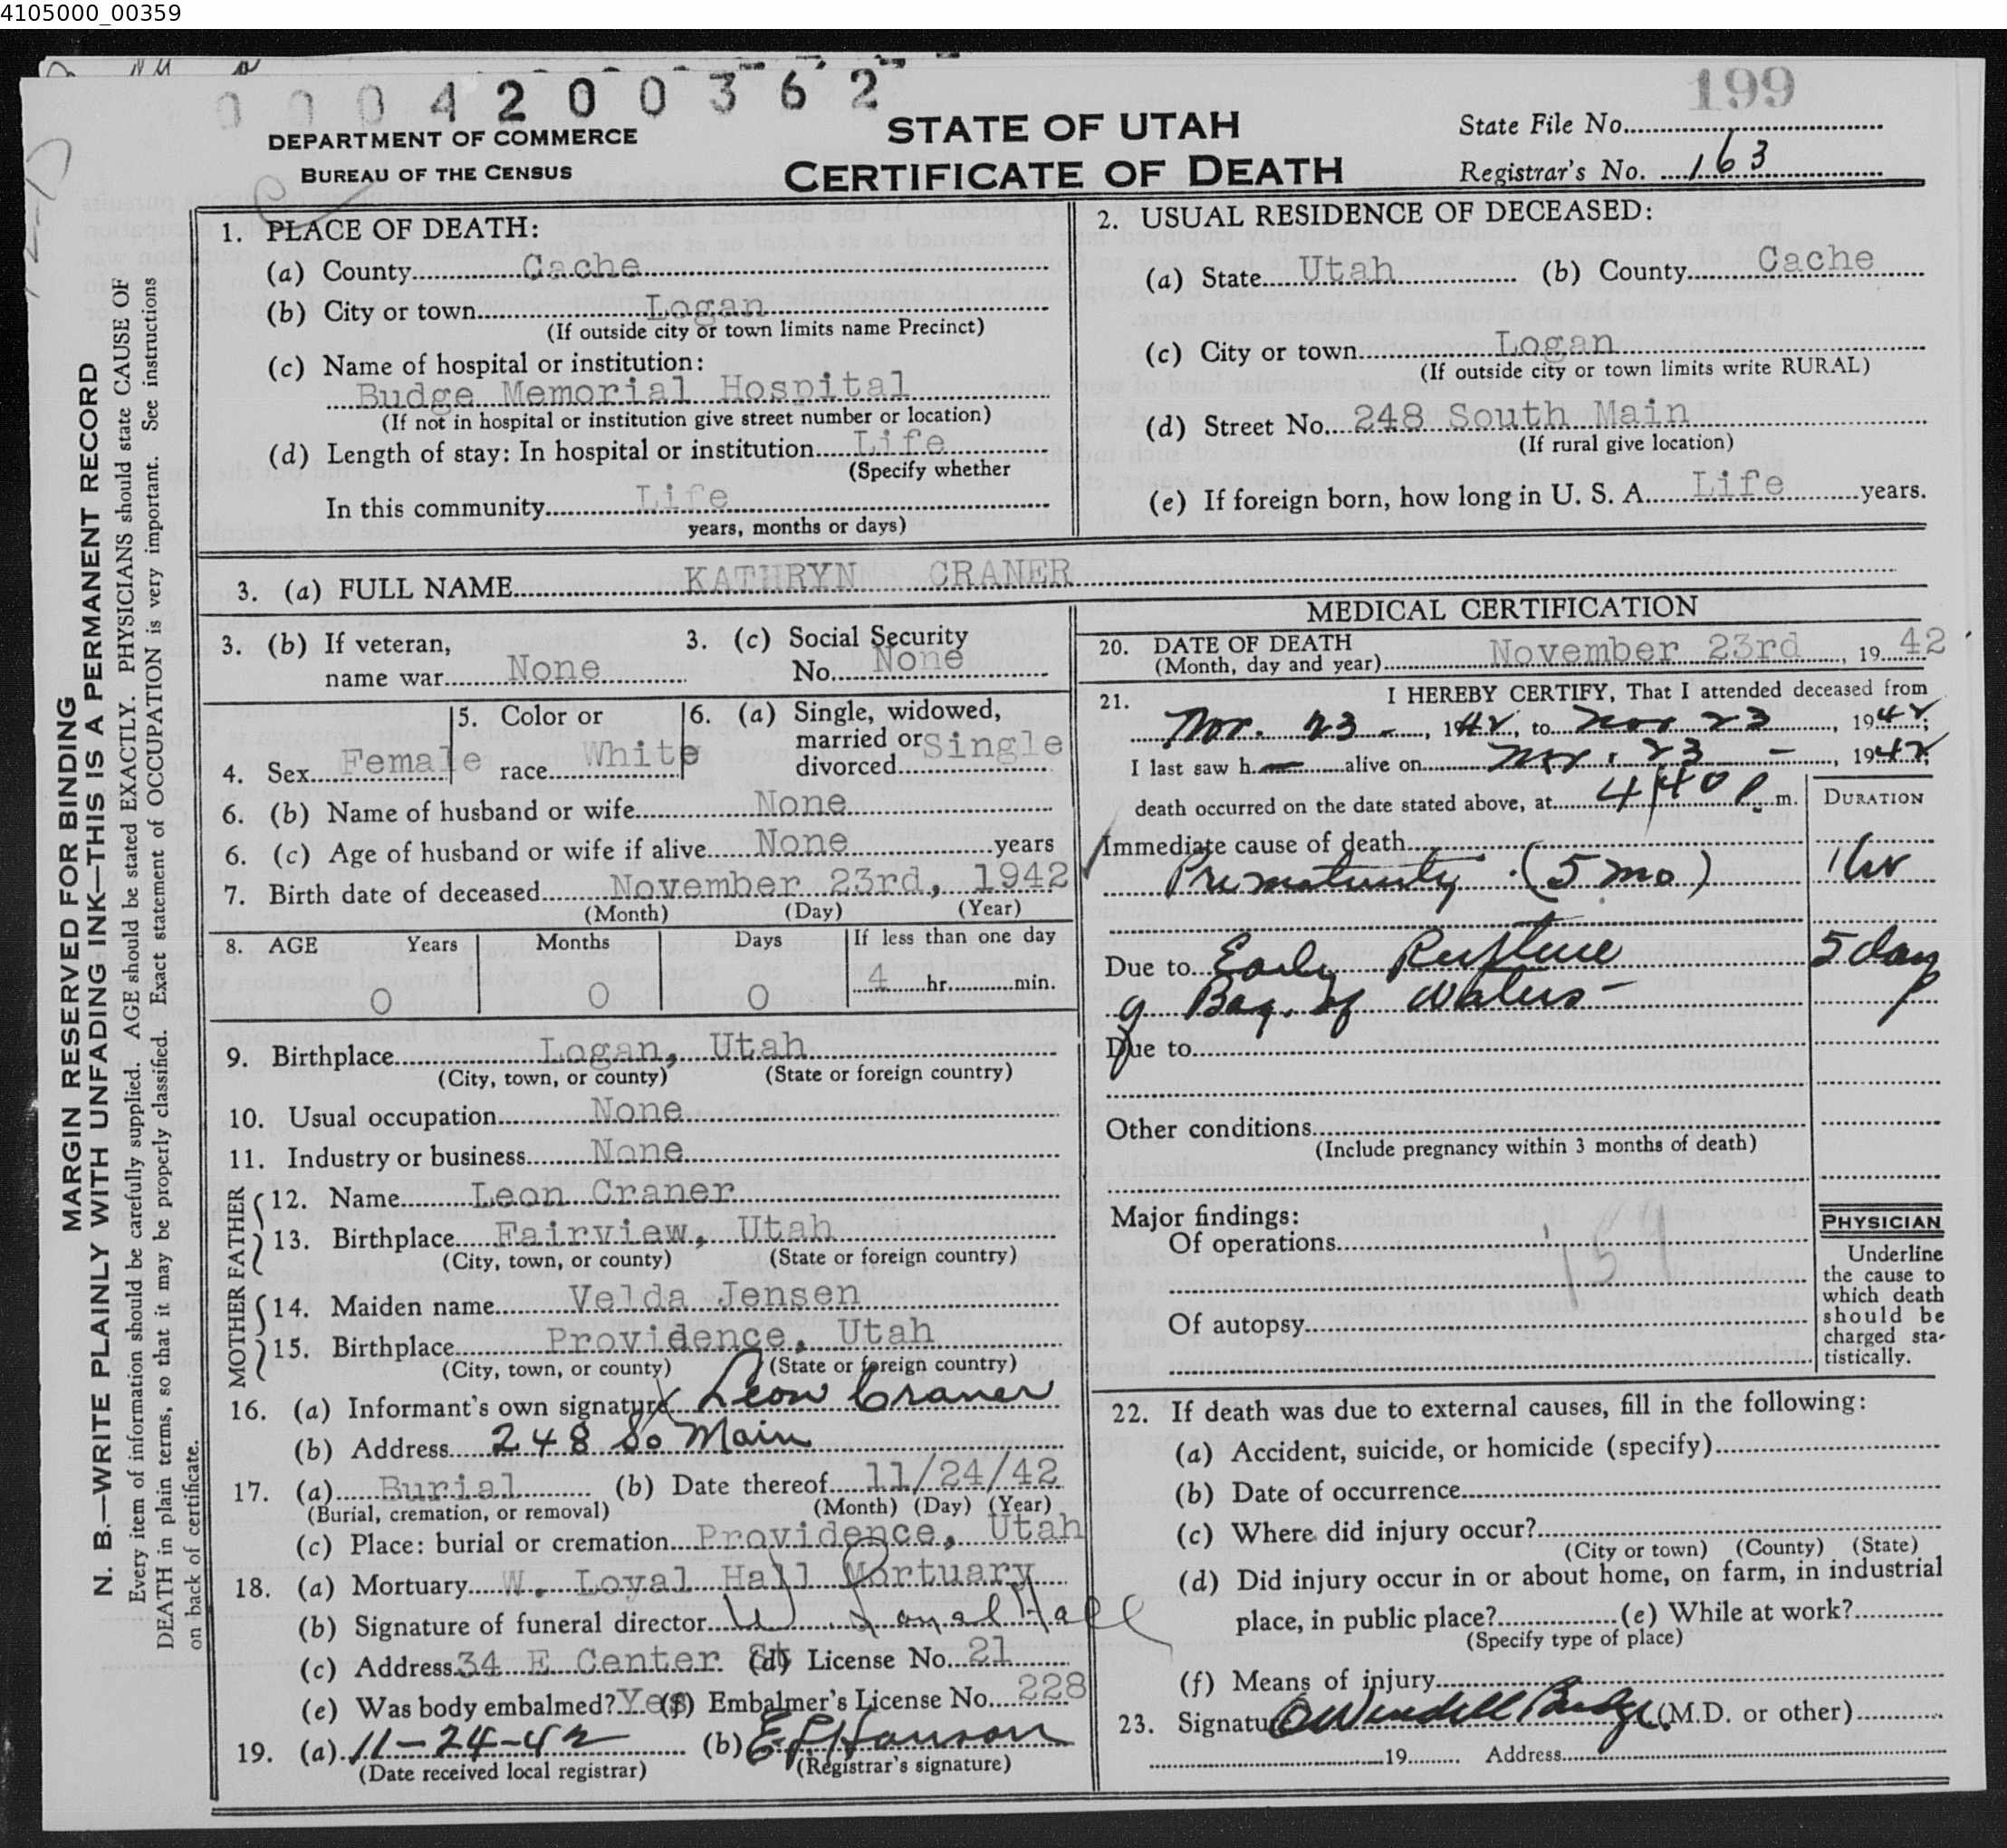 4105000_00359
0004200362
199
DEPARTMENT OF COMMERCE
BUREAU OF THE CENSUS
STATE OF UTAH
CERTIFICATE OF DEATH
State File No.
Registrar's No. 163
MARGIN RESERVED FOR BINDING
N. B.—WRITE PLAINLY WITH UNFADING INK—THIS IS A PERMANENT RECORD
Every item of information should be carefully supplied. AGE should be stated EXACTLY. PHYSICIANS should state CAUSE OF
DEATH in plain terms, so that it may be properly classified. Exact statement of OCCUPATION is very important. See instructions
on back of certificate.
1. PLACE OF DEATH:
(a) County Cache
(b) City or town Logan
(If outside city or town limits name Precinct)
(c) Name of hospital or institution:
Budge Memorial Hospital
(If not in hospital or institution give street number or location)
(d) Length of stay: In hospital or institution Life
(Specify whether
In this community Life
years, months or days)
2. USUAL RESIDENCE OF DECEASED:
(a) State Utah (b) County Cache
(c) City or town Logan
(If outside city or town limits write RURAL)
(d) Street No. 248 South Main
(If rural give location)
(e) If foreign born, how long in U. S. A. Life years.
3. (a) FULL NAME KATHRYN CRANER
3. (b) If veteran,
name war None
3. (c) Social Security
No. None
4. Sex Female
5. Color or
race White
6. (a) Single, widowed,
married or
divorced Single
6. (b) Name of husband or wife None
6. (c) Age of husband or wife if alive None years
7. Birth date of deceased November 23rd, 1942
(Month) (Day) (Year)
8. AGE Years Months Days If less than one day
0 0 0 4 hr. min.
9. Birthplace Logan, Utah
(City, town, or county) (State or foreign country)
10. Usual occupation None
11. Industry or business None
FATHER
12. Name Leon Craner
13. Birthplace Fairview, Utah
(City, town, or county) (State or foreign country)
MOTHER
14. Maiden name Velda Jensen
15. Birthplace Providence, Utah
(City, town, or county) (State or foreign country)
16. (a) Informant's own signature Leon Craner
(b) Address 248 So Main
17. (a) Burial (b) Date thereof 11/24/42
(Burial, cremation, or removal) (Month) (Day) (Year)
(c) Place: burial or cremation Providence, Utah
18. (a) Mortuary W. Loyal Hall Mortuary
(b) Signature of funeral director W Loyal Hall
(c) Address 34 E Center St (d) License No. 21
(e) Was body embalmed? Yes (f) Embalmer's License No. 228
19. (a) 11-24-42 (b) E P Hanson
(Date received local registrar) (Registrar's signature)
MEDICAL CERTIFICATION
20. DATE OF DEATH
(Month, day and year) November 23rd, 1942
21. I HEREBY CERTIFY, That I attended deceased from
Nov. 23 -, 1942, to Nov 23, 1942;
I last saw h alive on Nov. 23 -, 1942;
death occurred on the date stated above, at 4/40 P. m.
DURATION
Immediate cause of death
Prematurity (5 mo) 1 hr
Due to Early Rupture 5 day
of Bag of Waters -
Due to
Other conditions
(Include pregnancy within 3 months of death)
Major findings:
Of operations
159
Of autopsy
PHYSICIAN
Underline
the cause to
which death
should be
charged sta-
tistically.
22. If death was due to external causes, fill in the following:
(a) Accident, suicide, or homicide (specify)
(b) Date of occurrence
(c) Where did injury occur?
(City or town) (County) (State)
(d) Did injury occur in or about home, on farm, in industrial
place, in public place? (e) While at work?
(Specify type of place)
(f) Means of injury
23. Signature O Wendell Budge (M.D. or other)
19 Address